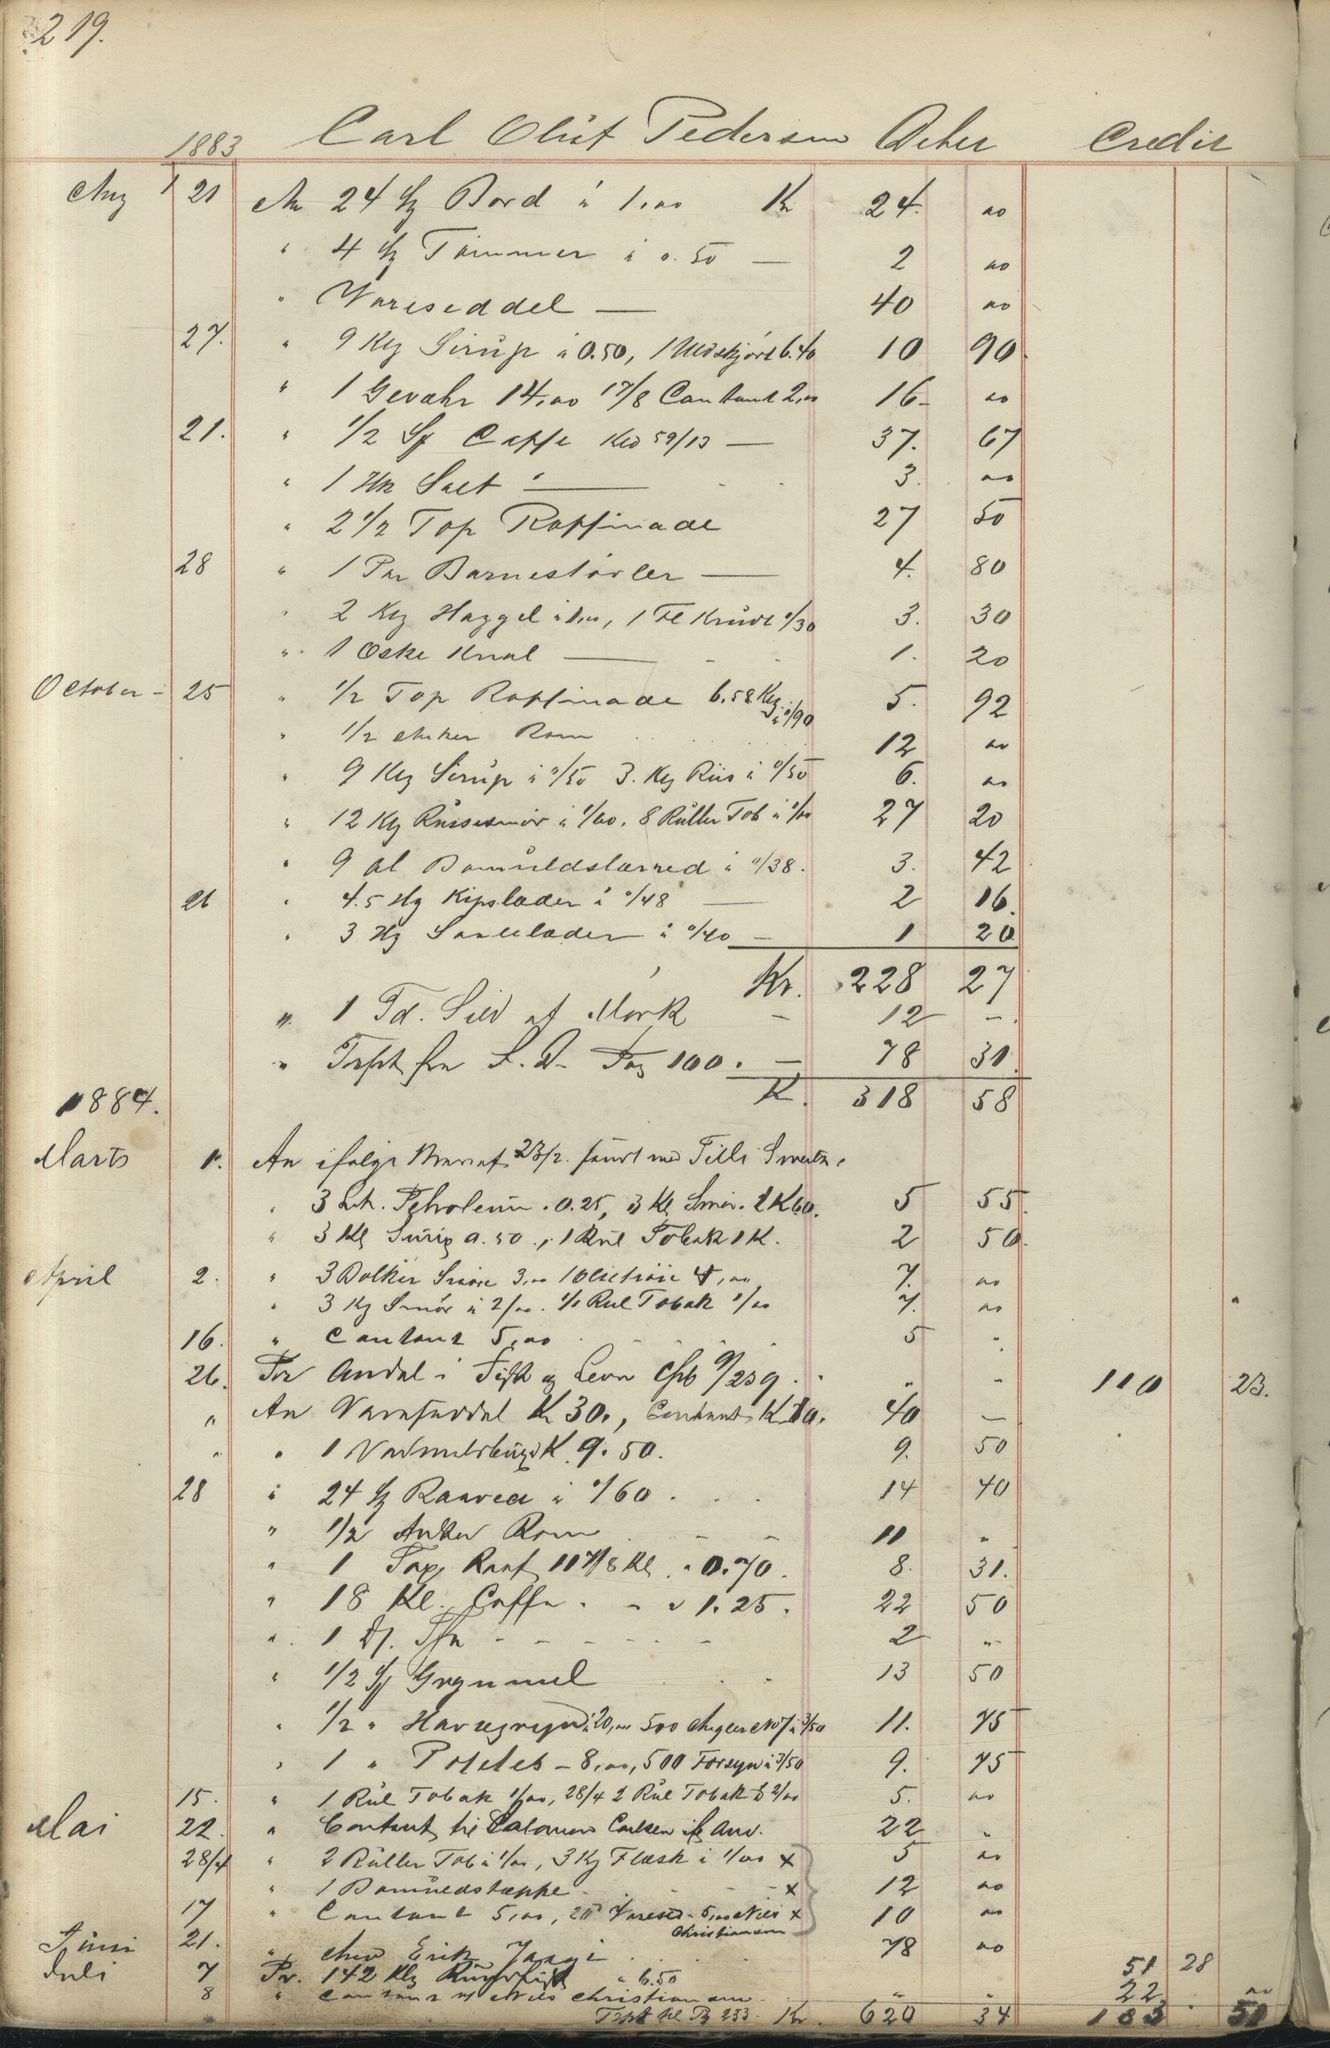 219.
1883 Carl Oluf Pedersen Debet Credit
Aug 21 An 24 Bord à 1,00 Kr 24. 00
" 4 Tømmer à 0.50 — 2 00
" Vareseddel — 40 00
27. " 9 Kg Sirup à 0.50, 1 Uldskjort 6.40 10 90
" 1 Gevæhr 14,00 17/8 Contant 2,00 16- 00
21. " 1/2 Sk Caffe 37. 67
" 1 Salt — 3. 00
" 2 1/2 Top Raffinade 27 50
28 " 1 Par Barnestøvler — 4. 80
" 2 Kg Haggel, 1 Fl Krudt 0/30 3. 30
" 1 Æske Knal — 1. 20
October - 25 " 1/2 Top Raffinade 6.58 Kg à 0/90 5. 92
" 1/2 Anker Rom 12 00
" 9 Kg Sirup à 0/50 3. Kg Riis à 0/50 6. 00
" 12 Kg Russesmør à 1/60. 8 Ruller Tob à 1/00 27 20
" 9 al Bomuldslærred à 0/38. 3. 42
26 " 4.5 Hg Kipslæder à 0/48 — 2 16.
" 3 Hg Saalelæder à 0/40 — 1 20
Kr. 228 27
" 1 Td. Sild af Mørk — 12 -.
" Trpt fra Pag 100. — 78 31.
K. 318 58
1884.
Marts 1. An ifølge 23/2. med Fille
" 3 Petroleum. 0.25, 3 Kg Smør. 1 K 60. 5 55.
" 3 Kg Sirup 0.50., 1 Rul Tobak 1 K. 2 50.
April 2. " 3 Bolker Snøre 3,00 1 Olietrøie 4,00 7. 00
" 3 Kg Smør à 2/00. 1/1 Rul Tobak 1/00 7. 00
16. " Contant 5,00 5 "
26. Per Andel i Fisk og Lever 9/239. " - 110 23.
" An Vareseddel K 30., Contant K 10. 40 —
" " 1 Vadmelsbuxe K 9.50. 9. 50
28 " 24 à 0/60. 14 40
" 1/2 Anker Rom 11 "
" 1 Top Raaf 11 7/8 Kg. 0.70. 8. 31.
" 18 Kg. Caffe. " 1.25. 22 50
" 1 2 "
" 1/2 Grynmel 13 50
" 1/2 " Havregryn à 20,00 500 Angler No 7 à 3/50 11. 75
" 1 " Potetes - 8,00, 500 Forsyn à 3/50 9. 75
15. " 1 Rul Tobak 1/00, 28/4 2 Rul Tobak à 2/00 5. 00
Mai 22. " Contant til Salomon Carlsen Anv. 22 "
28/4 " 2 Ruller Tob à 1/00, 3 Kg Flæsk à 1/00 x 5 00
" 1 Bomuldstæppe x 12 00
17 " Contant 5,00, 5,00 Nils x 10 00
Christiansen
Juni 21. " Anv Erik 78 00
Juli 7 Pr. 142 Kg Rundfisk " 6.50 51 28
8 " Contant af Nils Christiansen " " 22 00
Trpt til Pg 233. Kr. 620 34 183 51